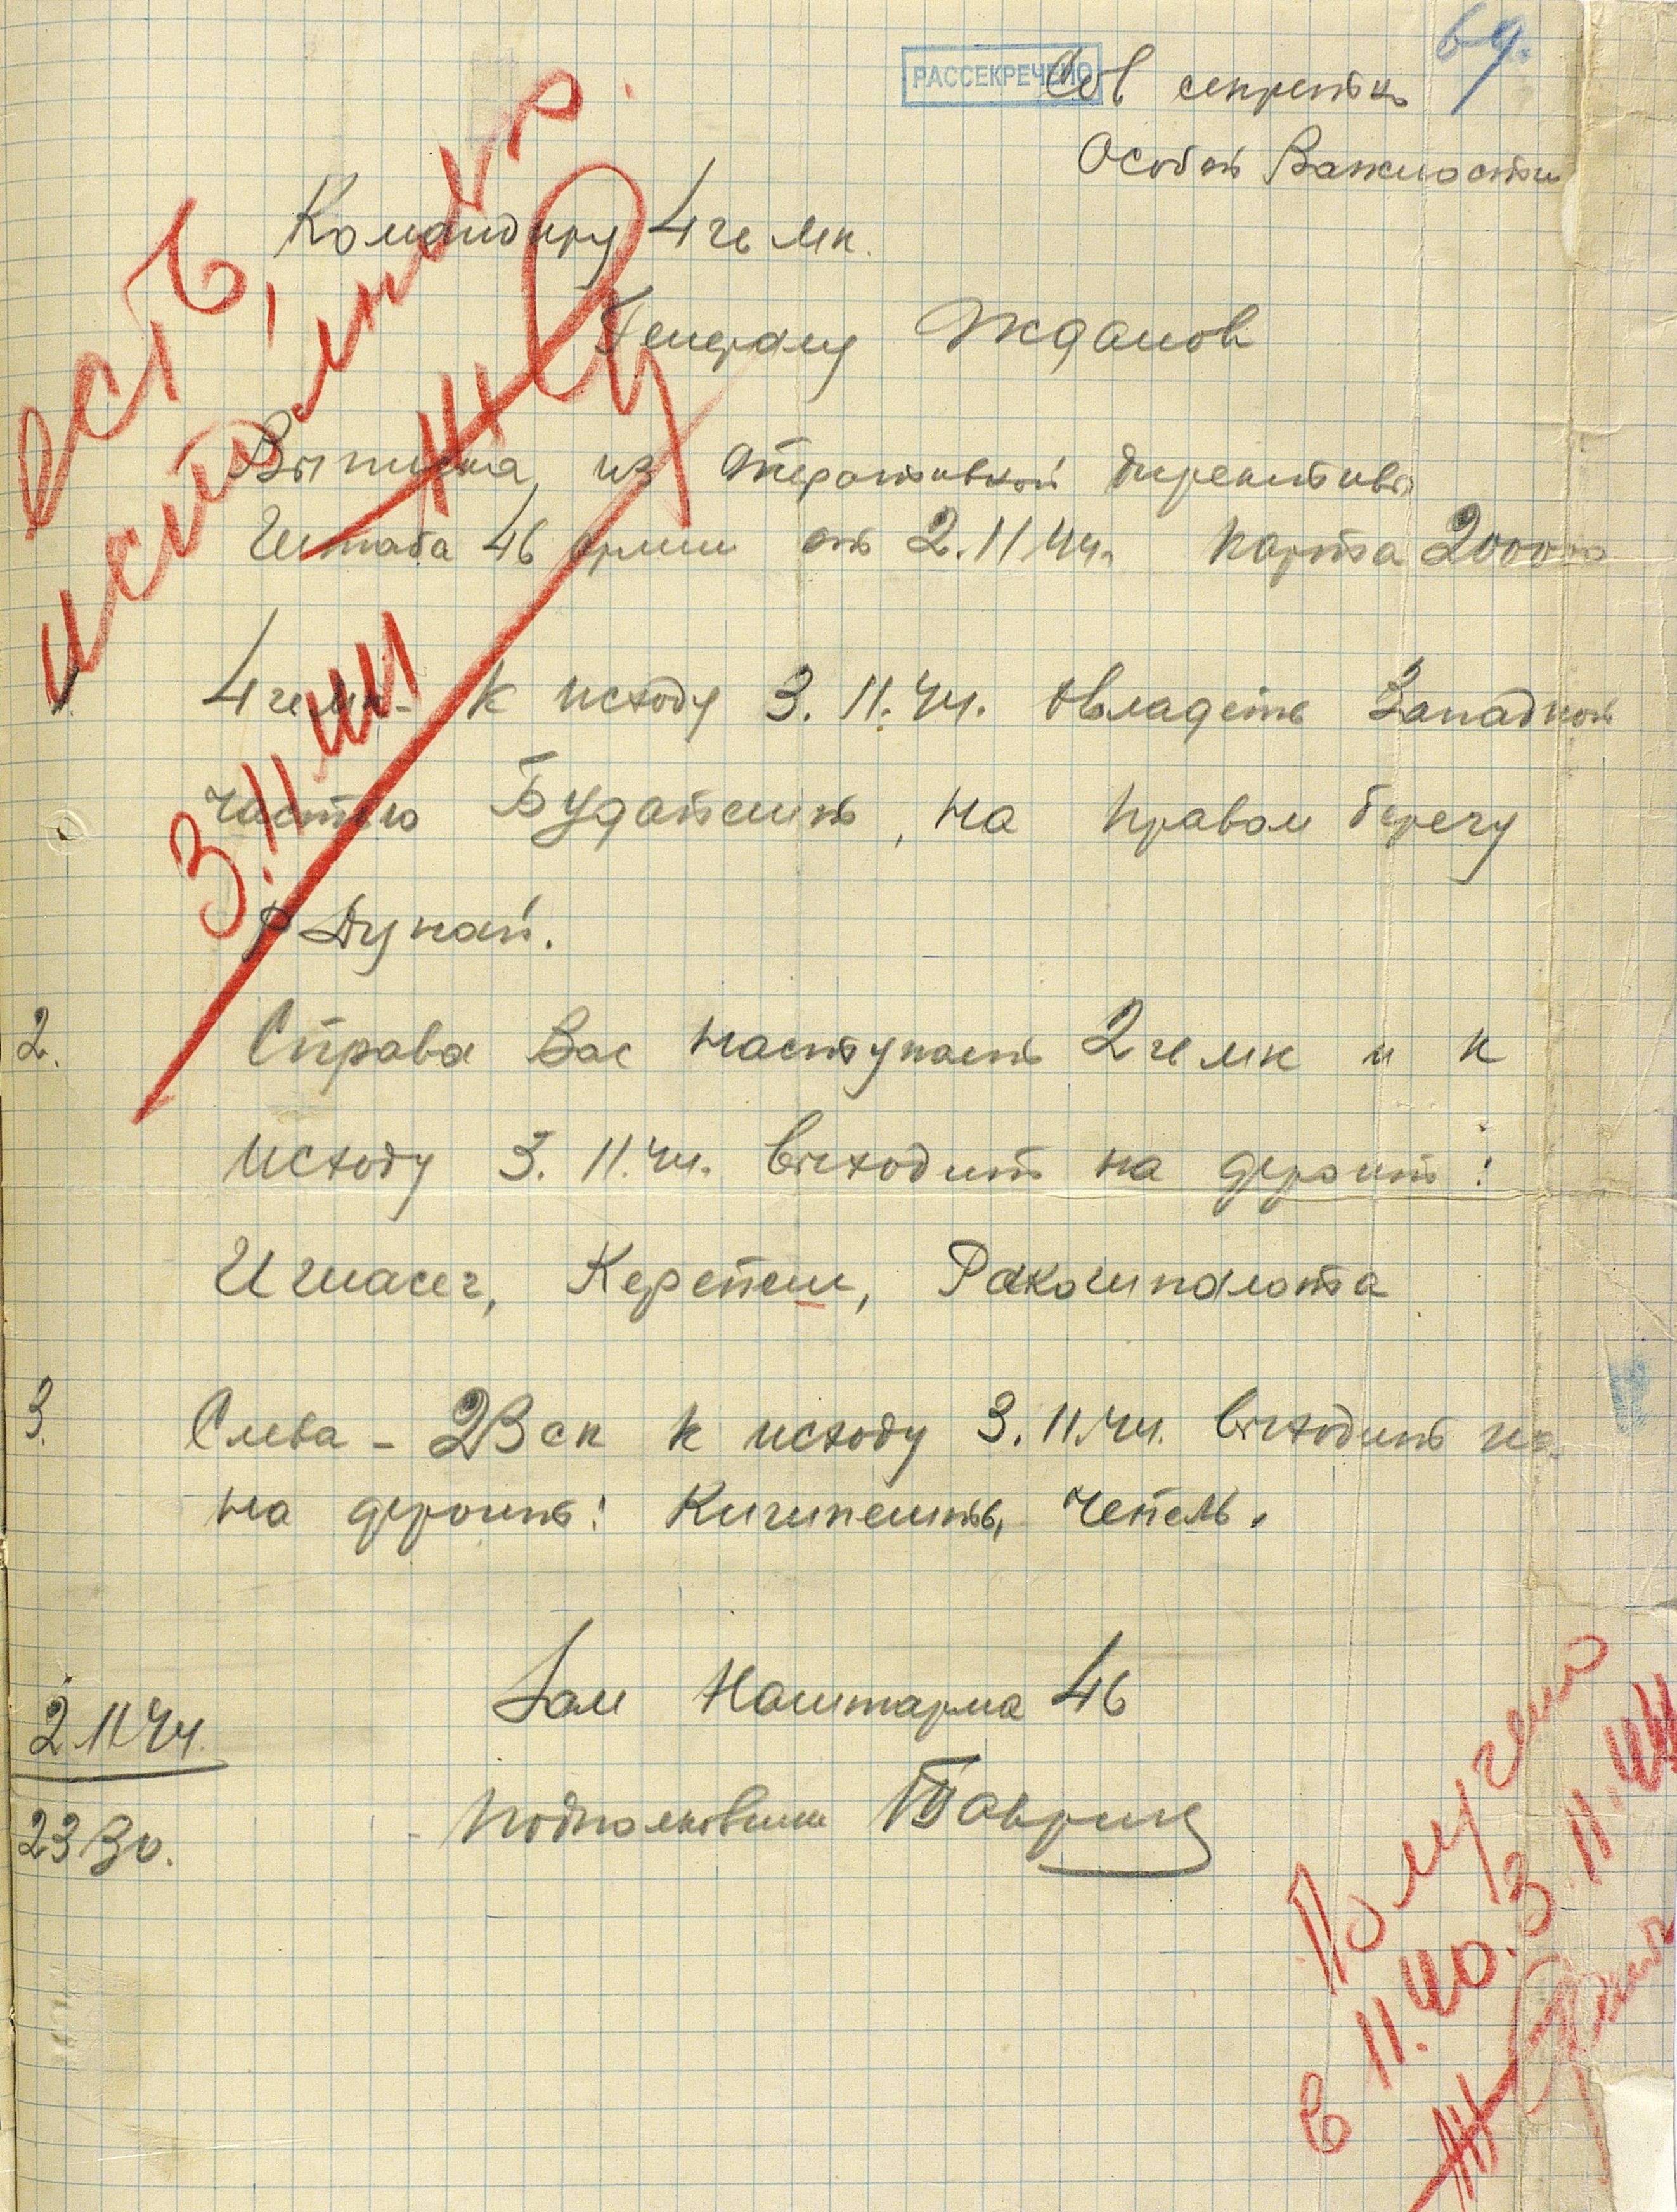 69.
РАССЕКРЕЧЕНО
Сов секретно
Особой Важности
Командиру 4 гв мк.
Генералу Жданов
Выписка из Оперативной директивы
Штаба 46 армии от 2.11.44г. карта 200000
1. 4 гв мк - к исходу 3.11.44. овладеть Западной
частью Будапешт, на правом берегу
р Дунай.
2. Справа Вас наступает 2 гв мк и к
исходу 3.11.44. выходит на фронт:
Ишасег, Керепеш, Ракошпалота
3. Слева - 23 ск к исходу 3.11.44. выходит на
на фронт: Кишпешть, Чепель.
Зам Наштарма 46
подполковник
2.11.44.
23 30.
есть,
3.11.44
Получено
в 11.40. 3.11.44